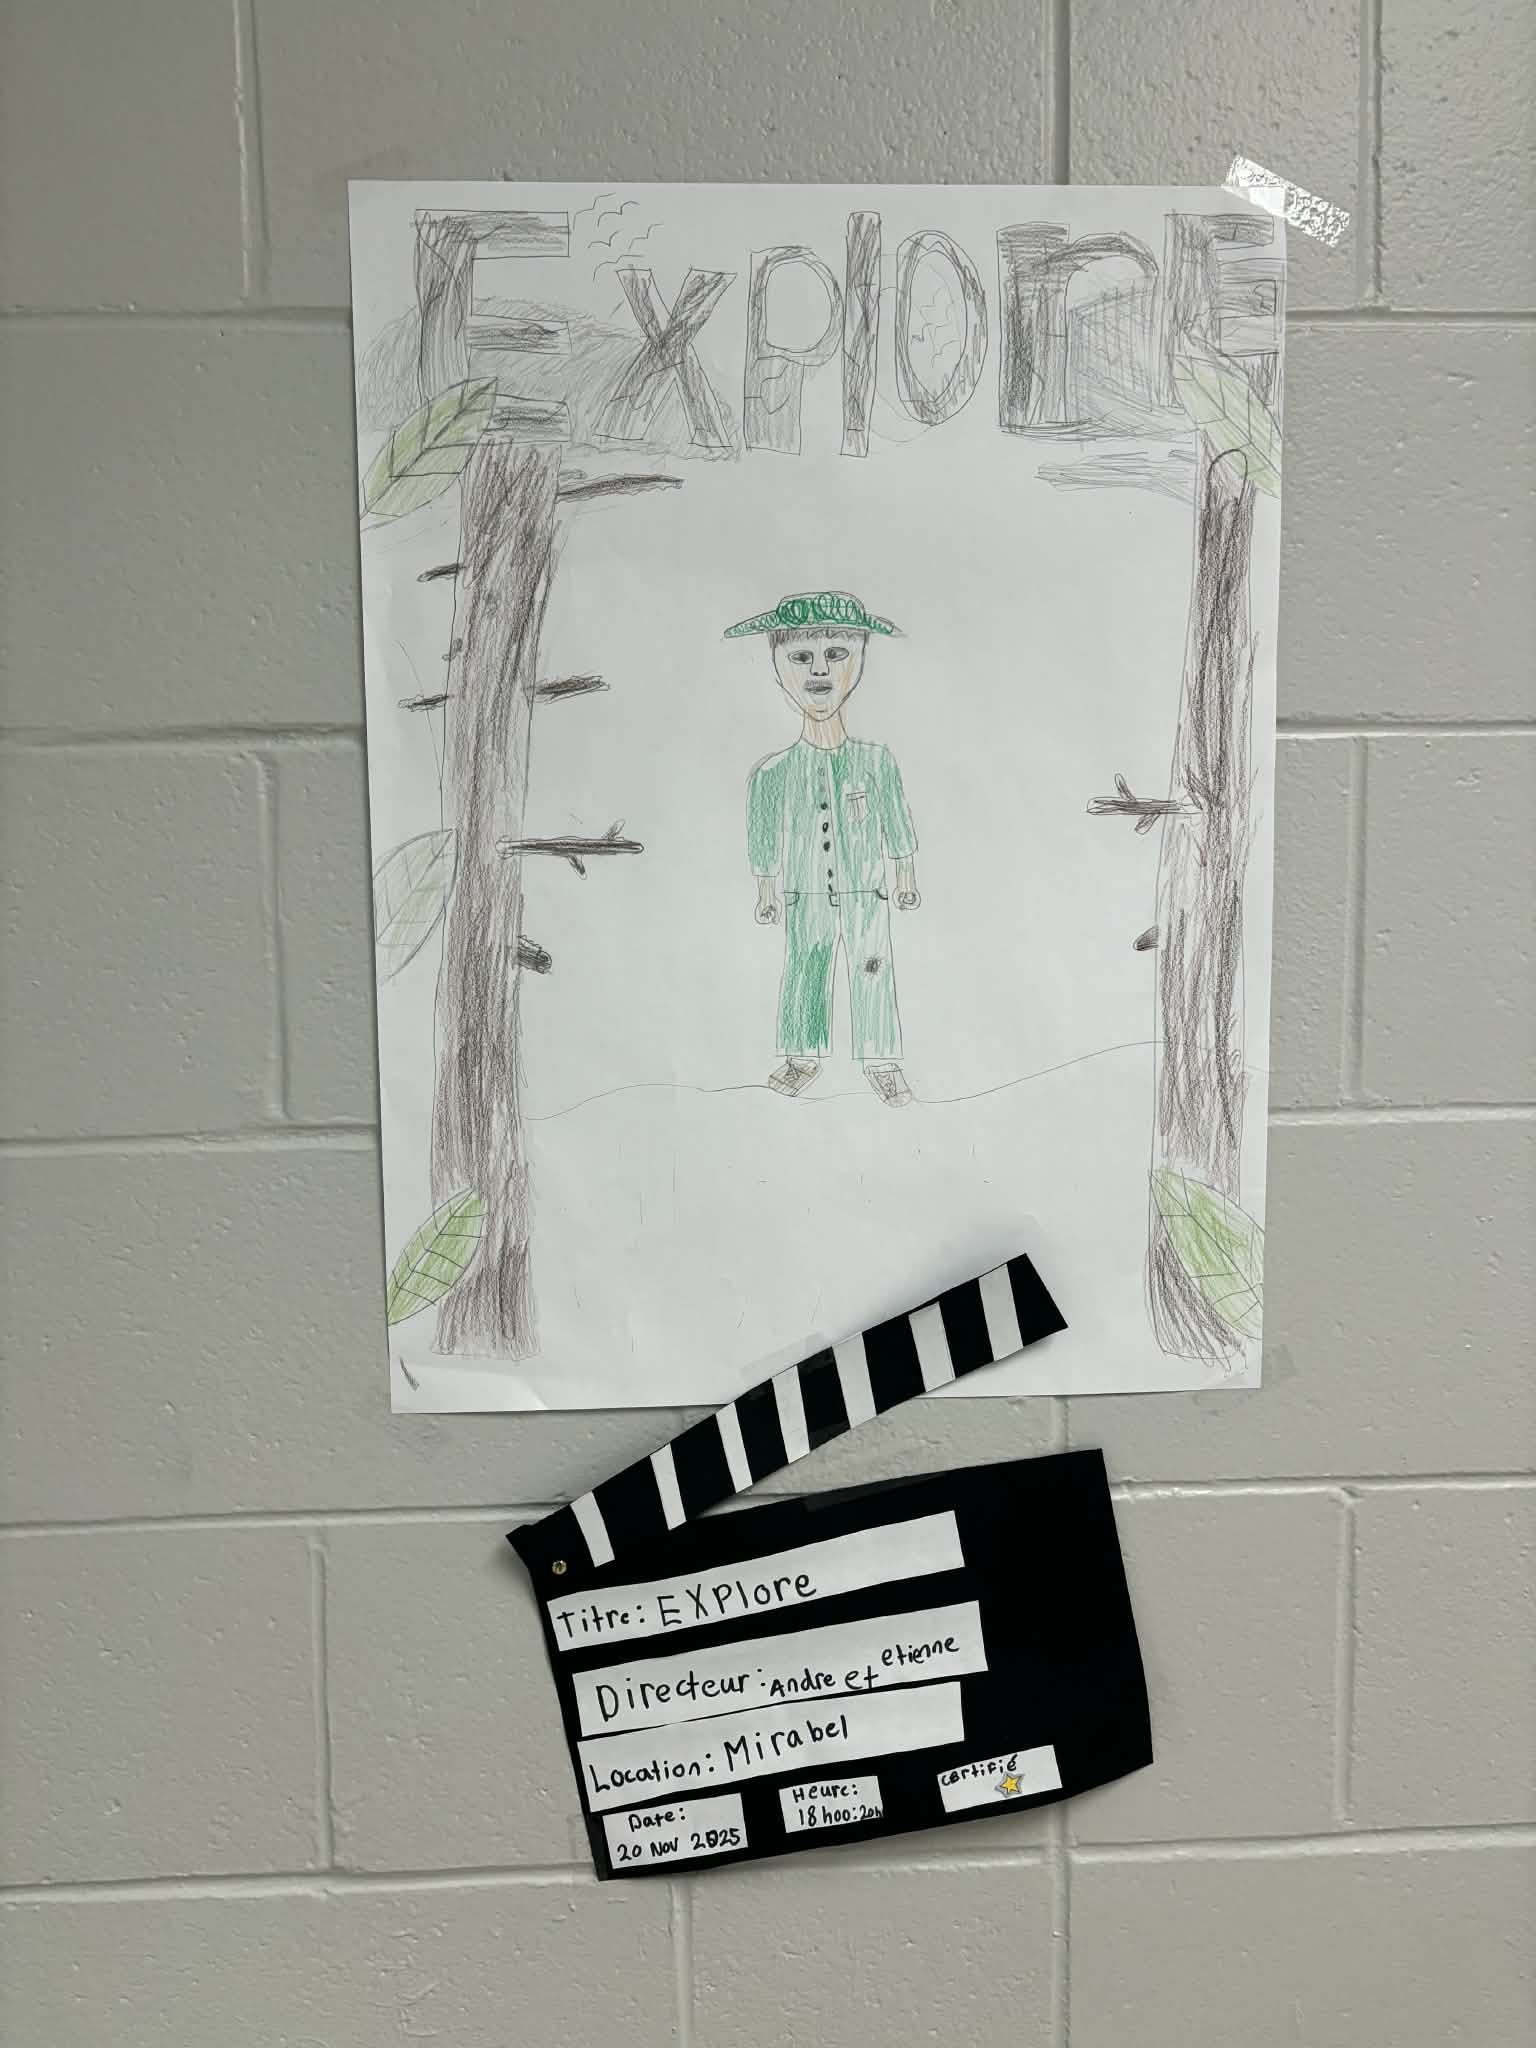 ExplorE
Titre: EXPlore
Directeur: Andre et etienne
Location: Mirabel
Date:
20 Nov 2025
Heure:
18h00:20h
certifié